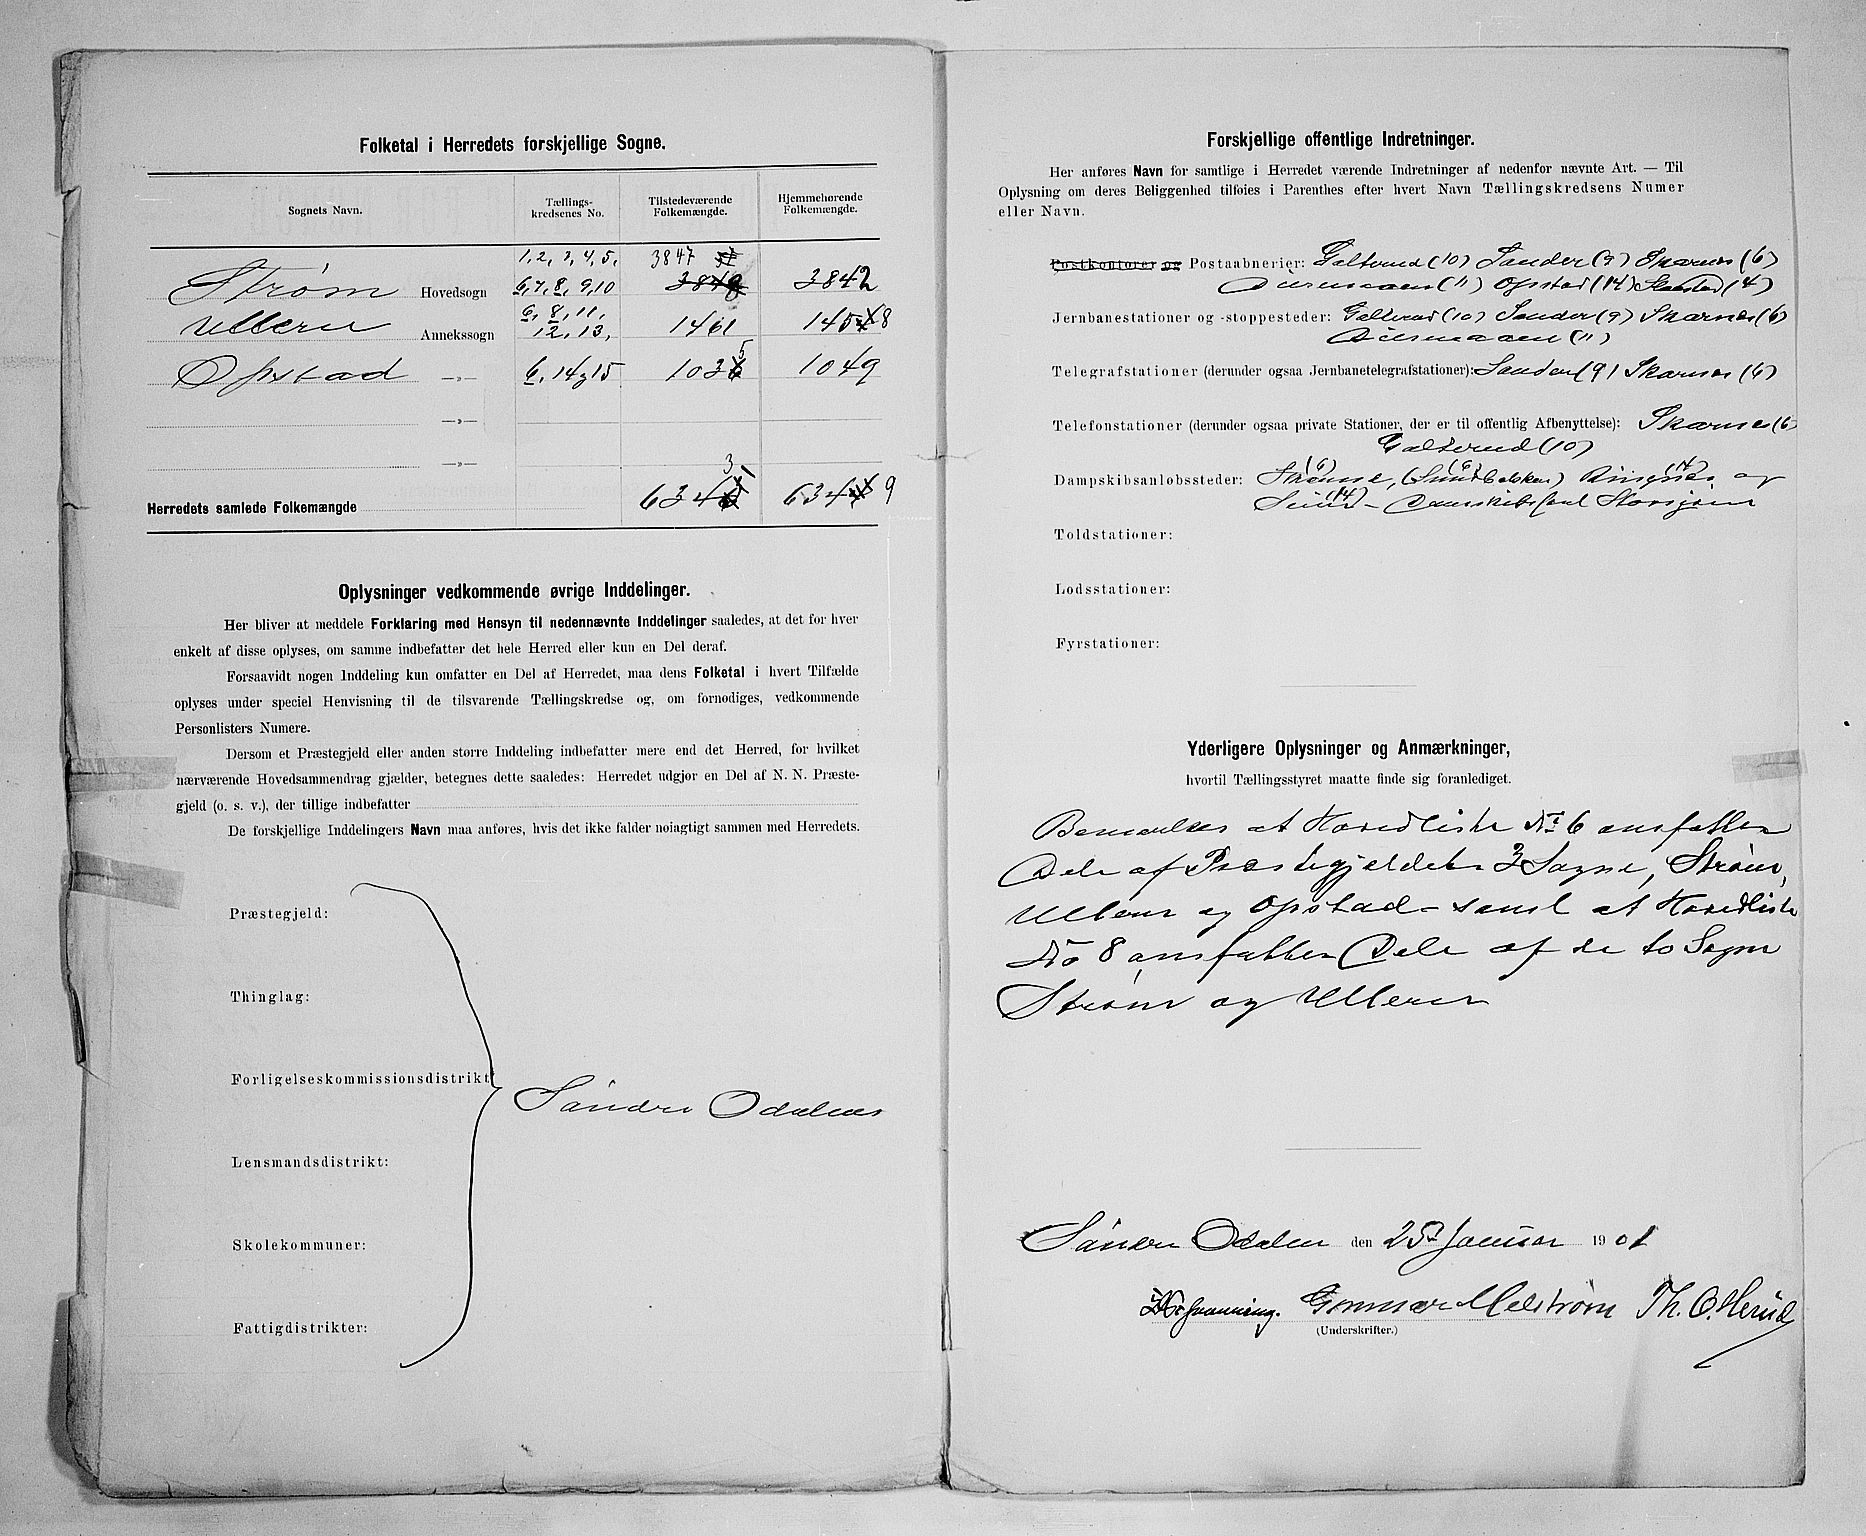 Folketal i Herredets forskjellige Sogne.
Sognets Navn.
Tællings-
kredsenes No.
Tilstedeværende
Folkemængde.
Hjemmehørende
Folkemængde.
1, 2, 3, 4, 5, 3847
Strøm Hovedsogn 6, 7, 8, 9, 10 3842
6, 8, 11,
Ullern Annekssogn 12, 13, 1461 1458
Opstad —»— 6, 14 og 15 1035 1049
—»—
—»—
Herredets samlede Folkemængde 6343 6349
Oplysninger vedkommende øvrige Inddelinger.
Her bliver at meddele Forklaring med Hensyn til nedennævnte Inddelinger saaledes, at det for hver
enkelt af disse oplyses, om samme indbefatter det hele Herred eller kun en Del deraf.
Forsaavidt nogen Inddeling kun omfatter en Del af Herredet, maa dens Folketal i hvert Tilfælde
oplyses under speciel Henvisning til de tilsvarende Tællingskredse og, om fornødiges, vedkommende
Personlisters Numere.
Dersom et Præstegjeld eller anden større Inddeling indbefatter mere end det Herred, for hvilket
nærværende Hovedsammendrag gjælder, betegnes dette saaledes: Herredet udgjør en Del af N. N. Præste-
gjeld (o. s. v.), der tillige indbefatter
De forskjellige Inddelingers Navn maa anføres, hvis det ikke falder nøiagtigt sammen med Herredets.
Præstegjeld:
Thinglag:
Forligelseskommissionsdistrikt
Søndre Odalens
Lensmandsdistrikt:
Skolekommuner:
Fattigdistrikter:
Forskjellige offentlige Indretninger.
Her anføres Navn for samtlige i Herredet værende Indretninger af nedenfor nævnte Art. — Til
Oplysning om deres Beliggenhed tilføies i Parenthes efter hvert Navn Tællingskredsens Numer
eller Navn.
Postkontorer og Postaabnerier: Galterud (10) Sander (9) Skarnes (6)
Disenaaen (11) Opstad (14) (4)
Jernbanestationer og -stoppesteder: Galterud (10) Sander (9) Skarnes (6)
Disenaaen (11)
Telegrafstationer (derunder ogsaa Jernbanetelegrafstationer): Sander (9) Skarnes (6)
Telefonstationer (derunder ogsaa private Stationer, der er til offentlig Afbenyttelse): Skarnes (6)
Galterud (10)
Dampskibsanløbssteder: (6) (6) (14) og
(14) Storsjøen
Toldstationer:
Lodsstationer:
Fyrstationer:
Yderligere Oplysninger og Anmærkninger,
hvortil Tællingsstyret maatte finde sig foranlediget.
Bemærkes at Hovedliste No 6 omfatter
Dele af Præstegjeldets 3 Sogne, Strøm,
Ullern og Opstad – samt at Hovedliste
No 8 omfatter Dele af de to Sogne
Strøm og Ullern
Søndre Odalen den 25 Januar 1901
Gunnar Melstrøm Th. O. Herud
(Underskrifter.)